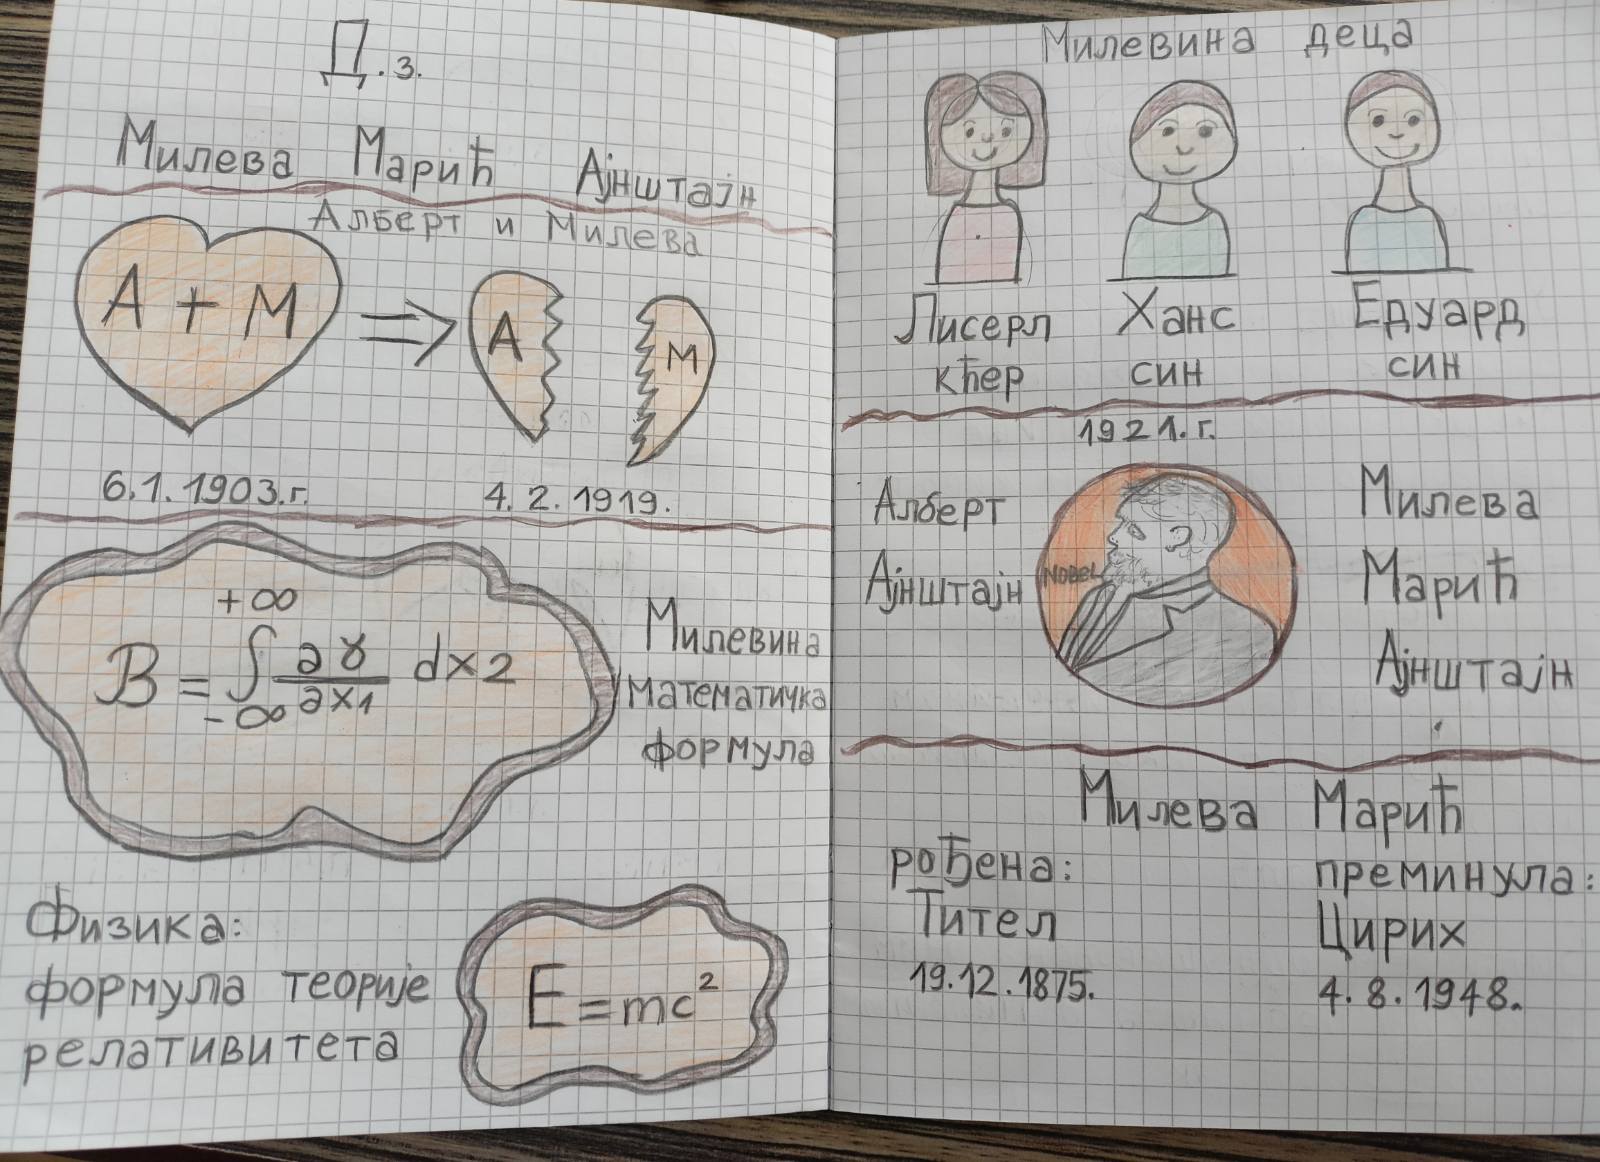 Д.з.
Милева Марић Ајнштајн
Алберт и Милева
А + М => А М
6.1.1903.г. 4.2.1919.
+∞
B = ∫ ∂γ/∂x1 dx2
-∞
Милевина
математичка
формула
Физика:
формула теорије
релативитета
E=mc²
Милевина деца
Лисерл Ханс Едуард
кћер син син
1921.г.
Алберт
Ајнштајн
NOBEL
Милева
Марић
Ајнштајн
Милева Марић
рођена: преминула:
Тител Цирих
19.12.1875. 4.8.1948.